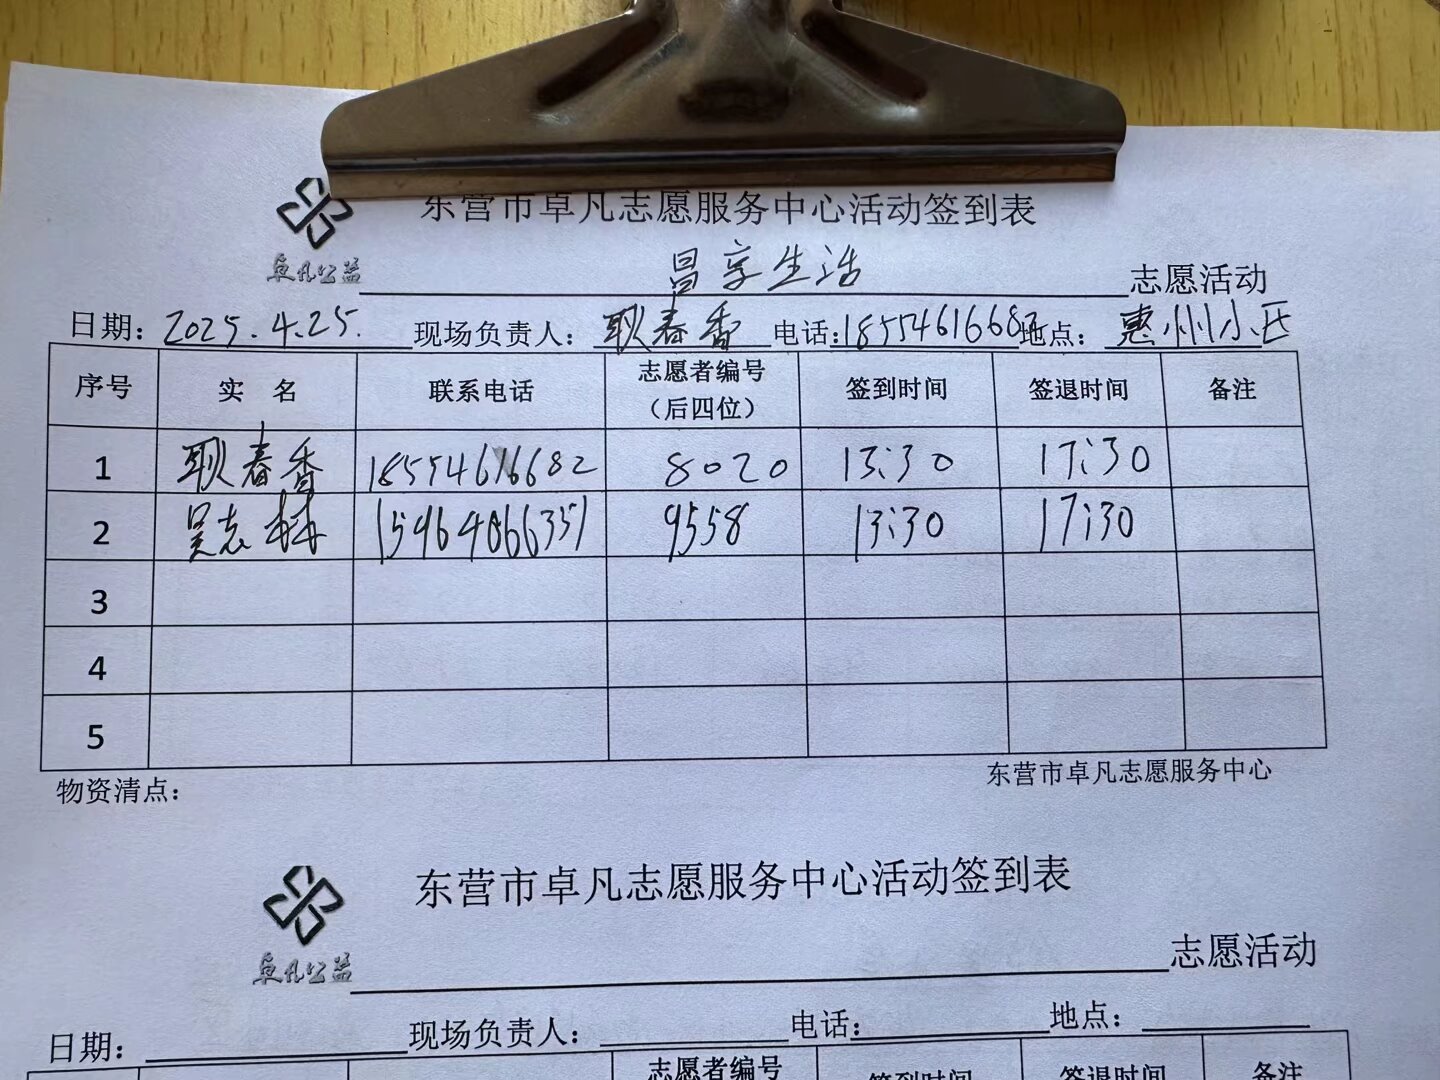 东营市卓凡志愿服务中心活动签到表
卓凡公益
昌享生活 志愿活动
日期：2025.4.25. 现场负责人：耿春香 电话：18554616682 地点：惠州小区
序号 实 名 联系电话 志愿者编号（后四位） 签到时间 签退时间 备注
1 耿春香 18554616682 8020 13:30 17:30
2 吴志林 15964066351 9558 13:30 17:30
3
4
5
物资清点： 东营市卓凡志愿服务中心
东营市卓凡志愿服务中心活动签到表
卓凡公益
志愿活动
日期： 现场负责人： 电话： 地点：
志愿者编号 签到时间 签退时间 备注